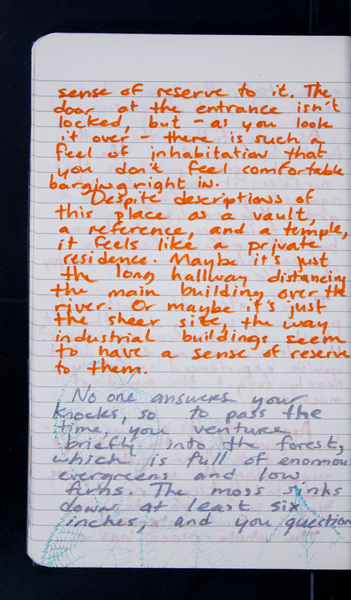 sense of reserve to it. The
door at the entrance isn't
locked, but - as you look
it over - there is such a
feel of inhabitation that
you don't feel comfortable
barging right in.
Despite descriptions of
this place as a vault,
a reference, and a temple,
it feels like a private
residence. Maybe it's just
the long hallway distancing
the main building over the
river. Or maybe it's just
the sheer size, the way
industrial buildings seem
to have a sense of reserve
to them.
No one answers your
knocks, so to pass the
time, you venture
briefly into the forest,
which is full of enormous
evergreens and low
firns. The moss sinks
down at least six
inches, and you question